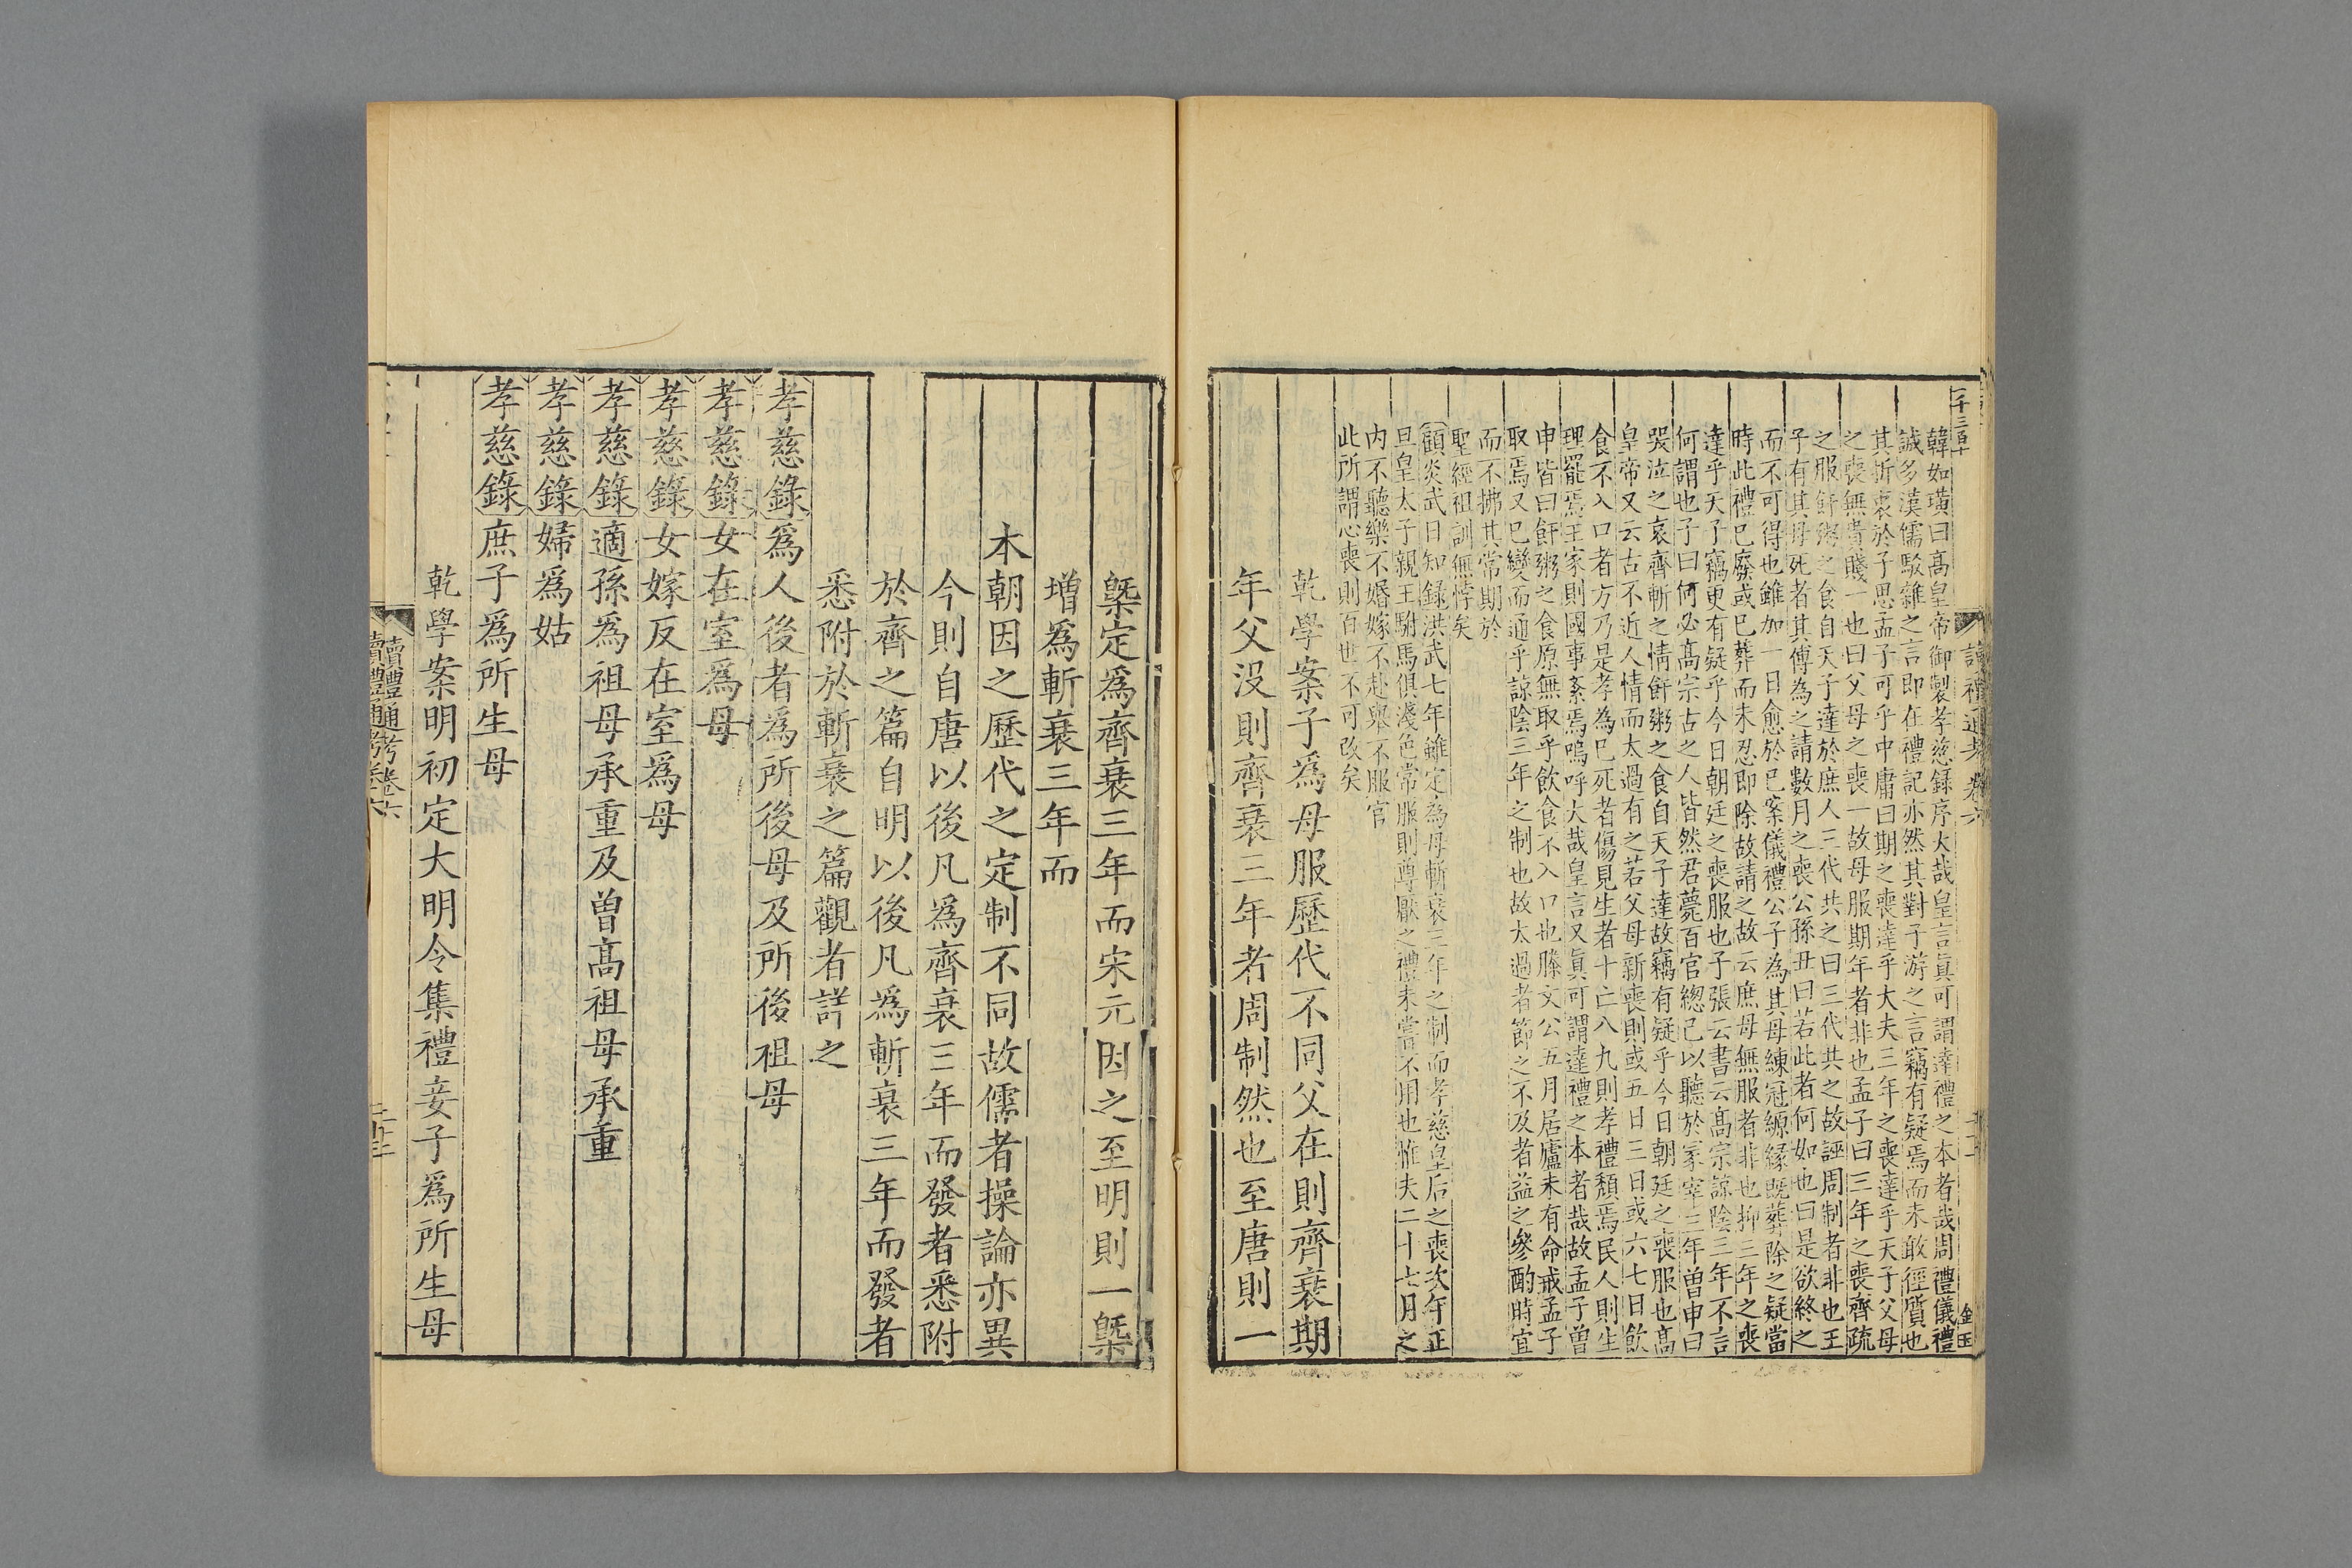 韓如璜曰高皇帝御製孝慈錄序大哉皇言眞可謂達禮之本者哉周禮儀禮
誠多漢儒駁雜之言即在禮記亦然其對子游之言竊有疑焉而未敢徑質也
其折衷於子思孟子可乎中庸曰期之喪達乎大夫三年之喪達乎天子父母
之喪無貴賤一也曰父母之喪一故母服期年者非也孟子曰三年之喪齊疏
之服飦粥之食自天子達於庶人三代共之曰三代共之故誣周制者非也王
子有其母死者其傅為之請數月之喪公孫丑曰若此者何如也曰是欲終之
而不可得也雖加一日愈於已案儀禮公子為其母練冠縓緣旣葬除之疑當
時此禮已廢或已葬而未忍即除故請之故云庶母無服者非也抑三年之喪
達乎天子竊更有疑乎今日朝廷之喪服也子張云書云高宗諒陰三年不言
何謂也子曰何必高宗古之人皆然君薨百官總己以聽於冢宰三年曾申曰
哭泣之哀齊斬之情飦粥之食自天子達故竊有疑乎今日朝廷之喪服也高
皇帝又云古不近人情而太過有之若父母新喪則或五日三日或六七日飲
食不入口者方乃是孝為已死者傷見生者十亡八九則孝禮頹焉民人則生
理罷焉王家則國事紊焉嗚呼大哉皇言又眞可謂達禮之本者哉故孟子曾
申皆曰飦粥之食原無取乎飲食不入口也滕文公五月居廬未有命戒孟子
取焉又已變而通乎諒陰三年之制也故太過者節之不及者益之參酌時宜
而不拂其常期於
聖經祖訓無悖矣
顧炎武日知錄洪武七年雖定為母斬衰三年之制而孝慈皇后之喪次年正
旦皇太子親王駙馬俱淺色常服則尊厭之禮未嘗不用也惟夫二十七月之
内不聽樂不婚嫁不赴舉不服官
此所謂心喪則百世不可改矣
乾學案子為母服歷代不同父在則齊衰期
年父没則齊衰三年者周制然也至唐則一
槩定爲齊衰三年而宋元因之至明則一槩
增爲斬衰三年而
本朝因之歷代之定制不同故儒者操論亦異
今則自唐以後凡爲齊衰三年而發者悉附
於齊之篇自明以後凡爲斬衰三年而發者
悉附於斬衰之篇觀者詳之
孝慈錄爲人後者爲所後母及所後祖母
孝慈錄女在室爲母
孝慈錄女嫁反在室爲母
孝慈錄適孫爲祖母承重及曾高祖母承重
孝慈錄婦爲姑
孝慈錄庶子爲所生母
乾學案明初定大明令集禮妾子爲所生母
讀禮通考卷六